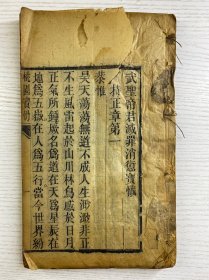 武聖帝君滅罪消愆寶懺
持正章第一
恭惟
昊天蕩蕩無道不成人生渺渺非正
不生風雷起於山川林鳥感於日月
正氣所鐘厥名爲道在天爲星辰在
地爲五嶽在人爲五行當今世界紛
桃園